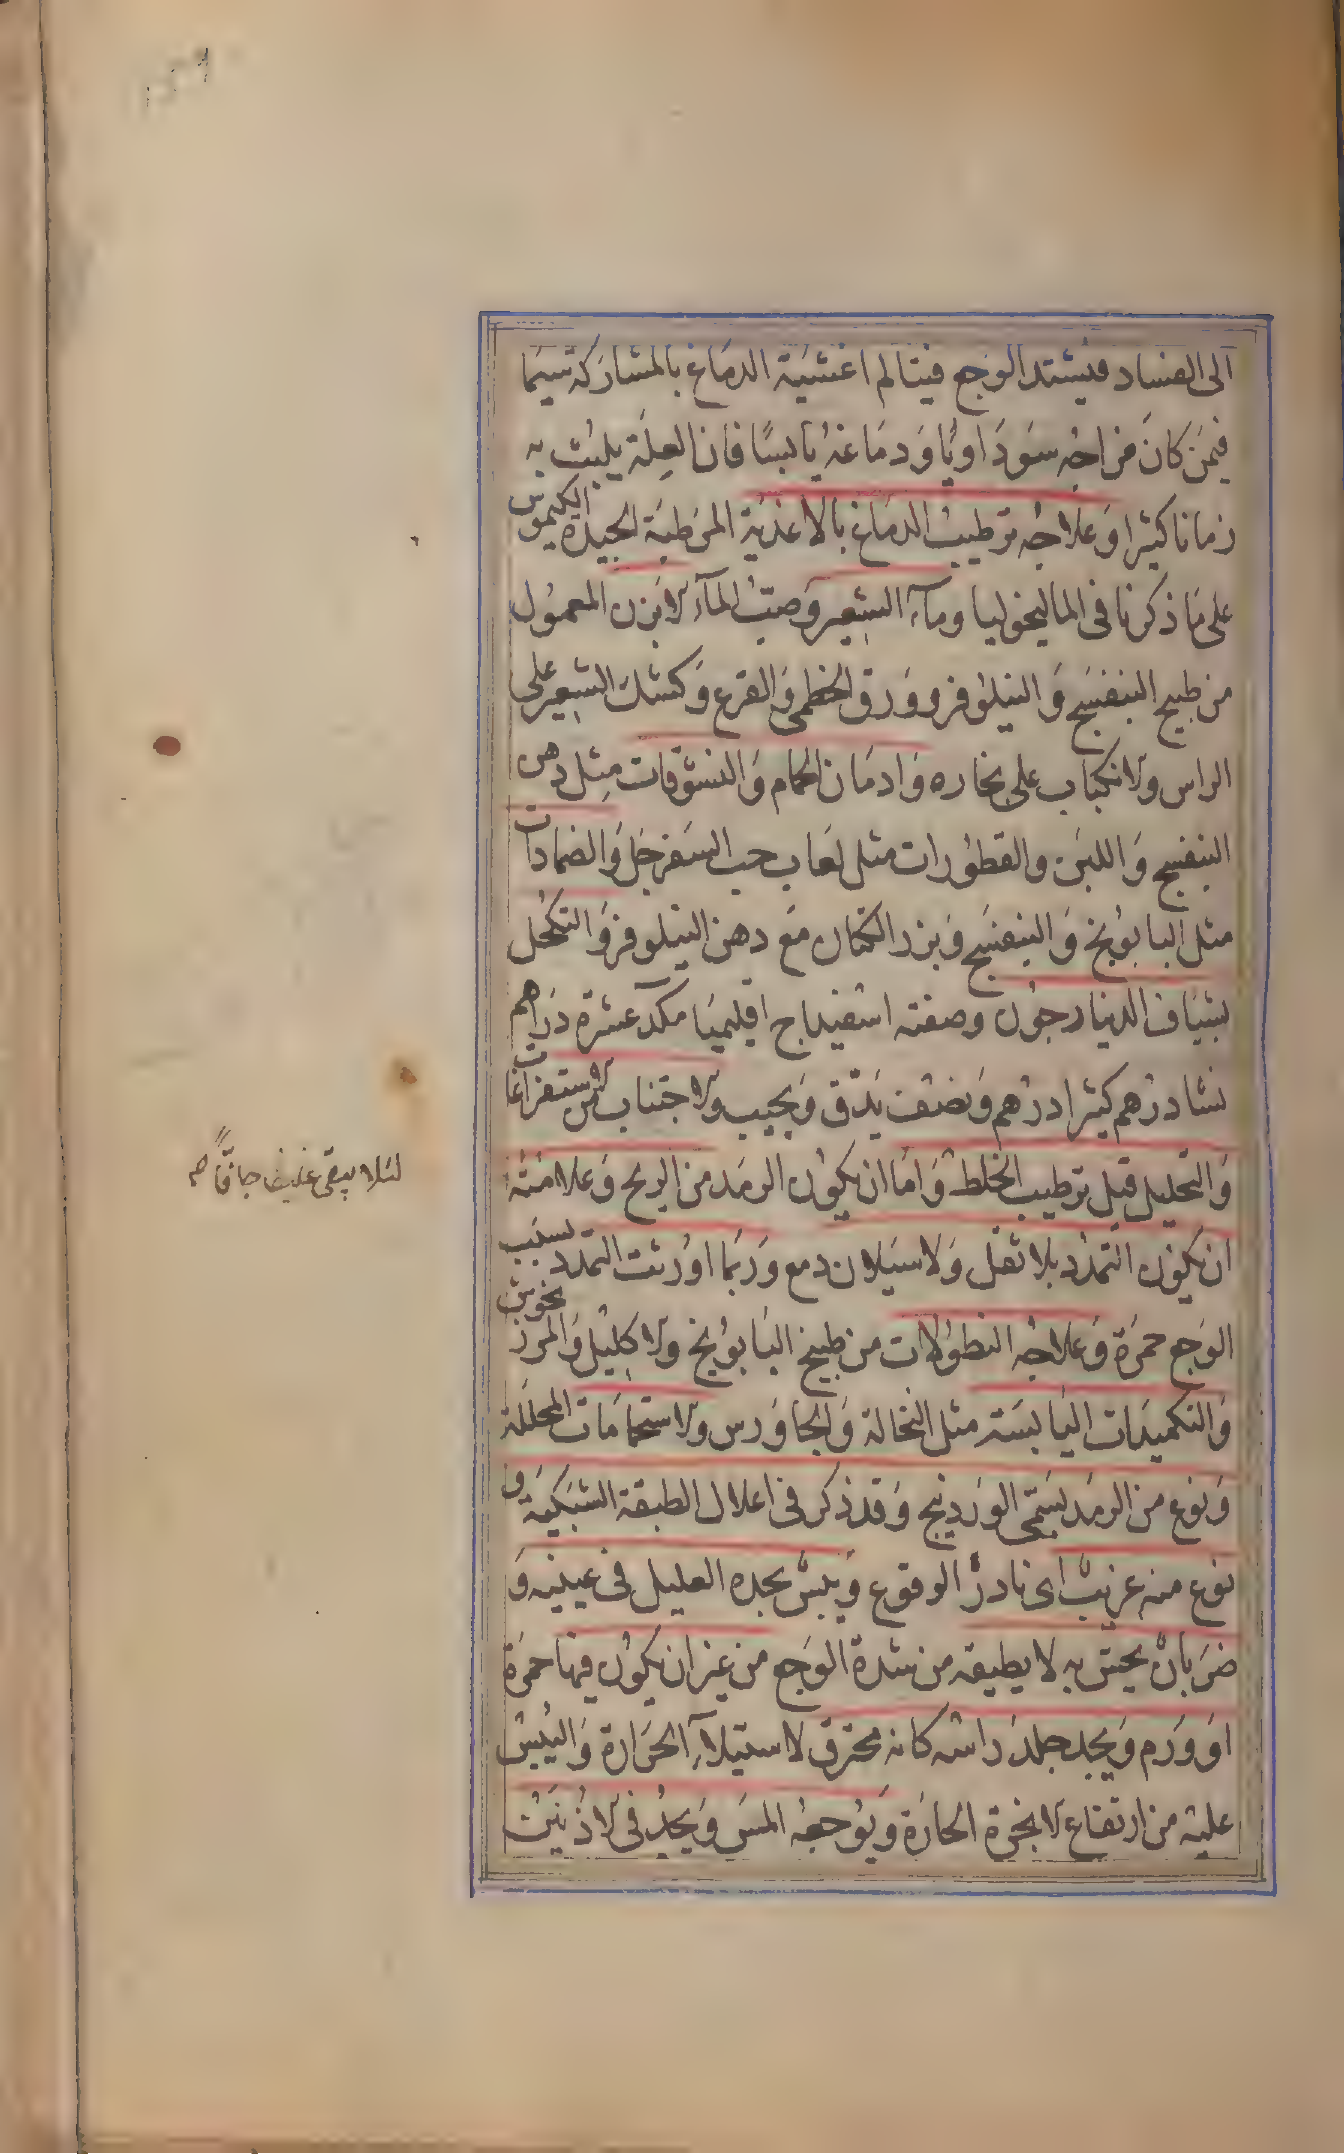 الى الفساد فيشتد الوجع فيتالم اغشية الدماغ بالمشاركة سيما
فيمن كان مزاجه سوداويا ودماغه يابسا فان العلة يلبث به
زمانا كثيرا وعلاجه ترطيب الدماغ بالاغذية المرطبة الجيدة الكيموس
على ما ذكرنا فى الماليخوليا ومآء الشعير وصب المآء الابزن المعمول
من طبيخ البنفسج والنيلوفر وورق الخطمى والقرع وكشك الشعير على
الراس والانكباب على بخاره وادمان الحمام والنشوقات مثل دهن
البنفسج واللبن والقطورات مثل لعاب حب السفرجل والضمادات
مثل البابونج والبنفسج وبزر الكتان مع دهن النيلوفر والتكحل
بشياف الدينارجون وصفته اسفيداج اقليميا مكد عشرة دراهم
نشا درهم كثيرا درهم ونصف يدق ويجيب والاجتناب الاستفراغات
والتحليل قبل ترطيب الخلط واما ان يكون الرمد من الريح وعلامته
ان يكون التمدد بلا ثقل ولا سيلان دمع وربما اورثت التمدد بسبب
الوجع حمرة وعلاجه النطولات من طبيخ البابونج والاكليل والمرزنجوش
والتكميدات اليابسة مثل النخالة والجاورس والاستحمامات المحللة
ونوع من الرمد يسمى الوردينج وقد ذكر فى اعلال الطبقة الشبكية و
نوع منه غريب اى نادر الوقوع ويبس يجده العليل فى عينيه و
ضربان يحس به لا يطيقه من شدة الوجع من غير ان يكون فيها حمرة
او ورم ويجد جلد راسه كانه محترق لاستيلآء الحرارة واليبس
عليه من ارتفاع الابخرة الحارة ويوجعه المس ويجد فى الاذنين
لئلا يبقى غليظ جافا